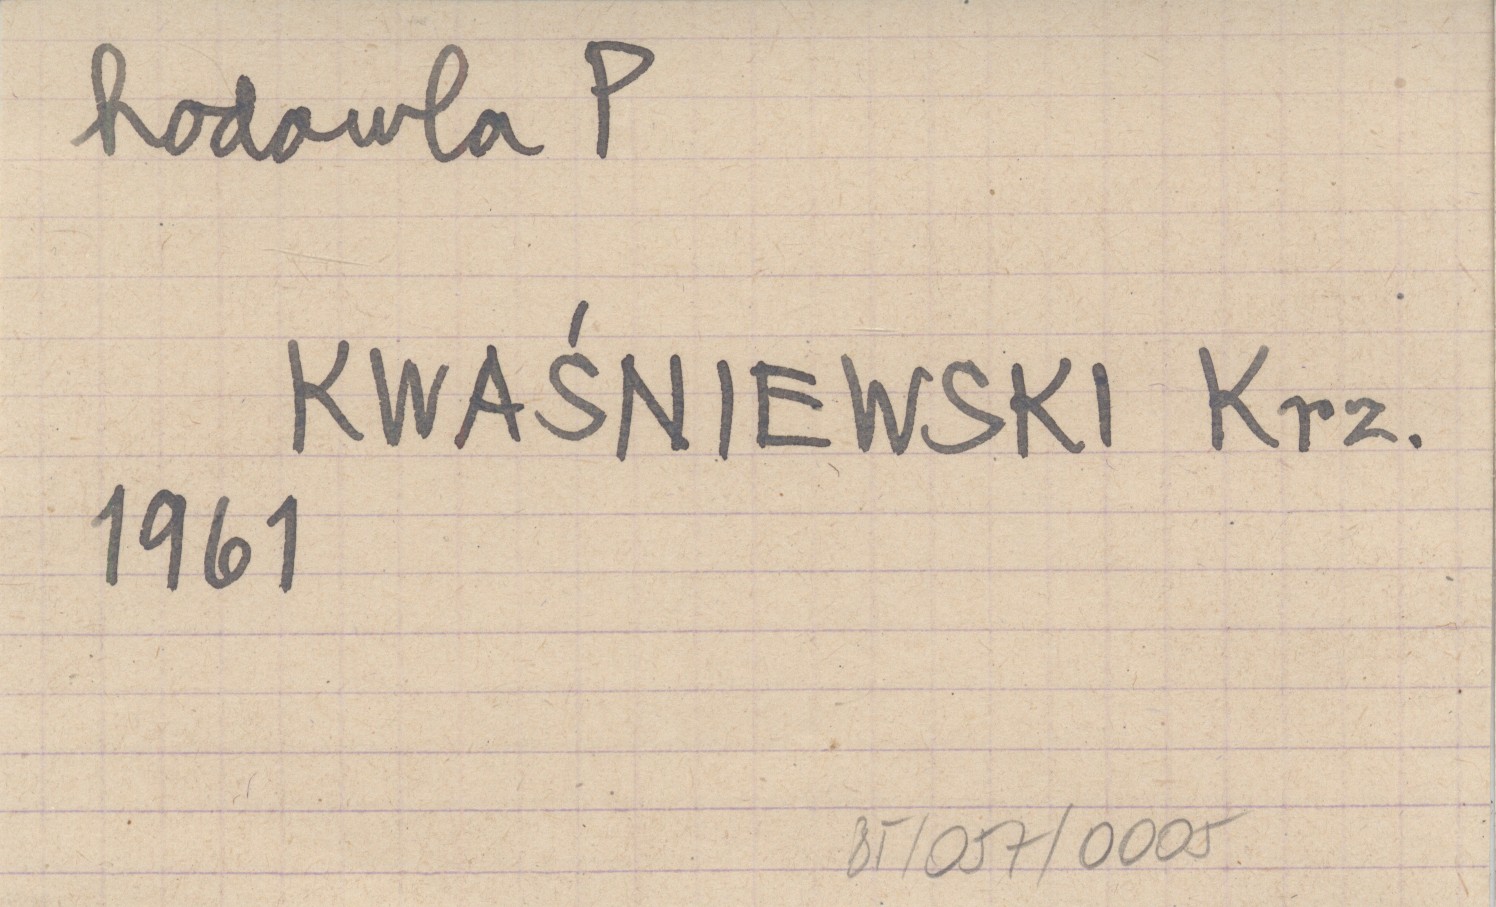 hodowla P
KWAŚNIEWSKI Krz.
1961
BI/057/0005